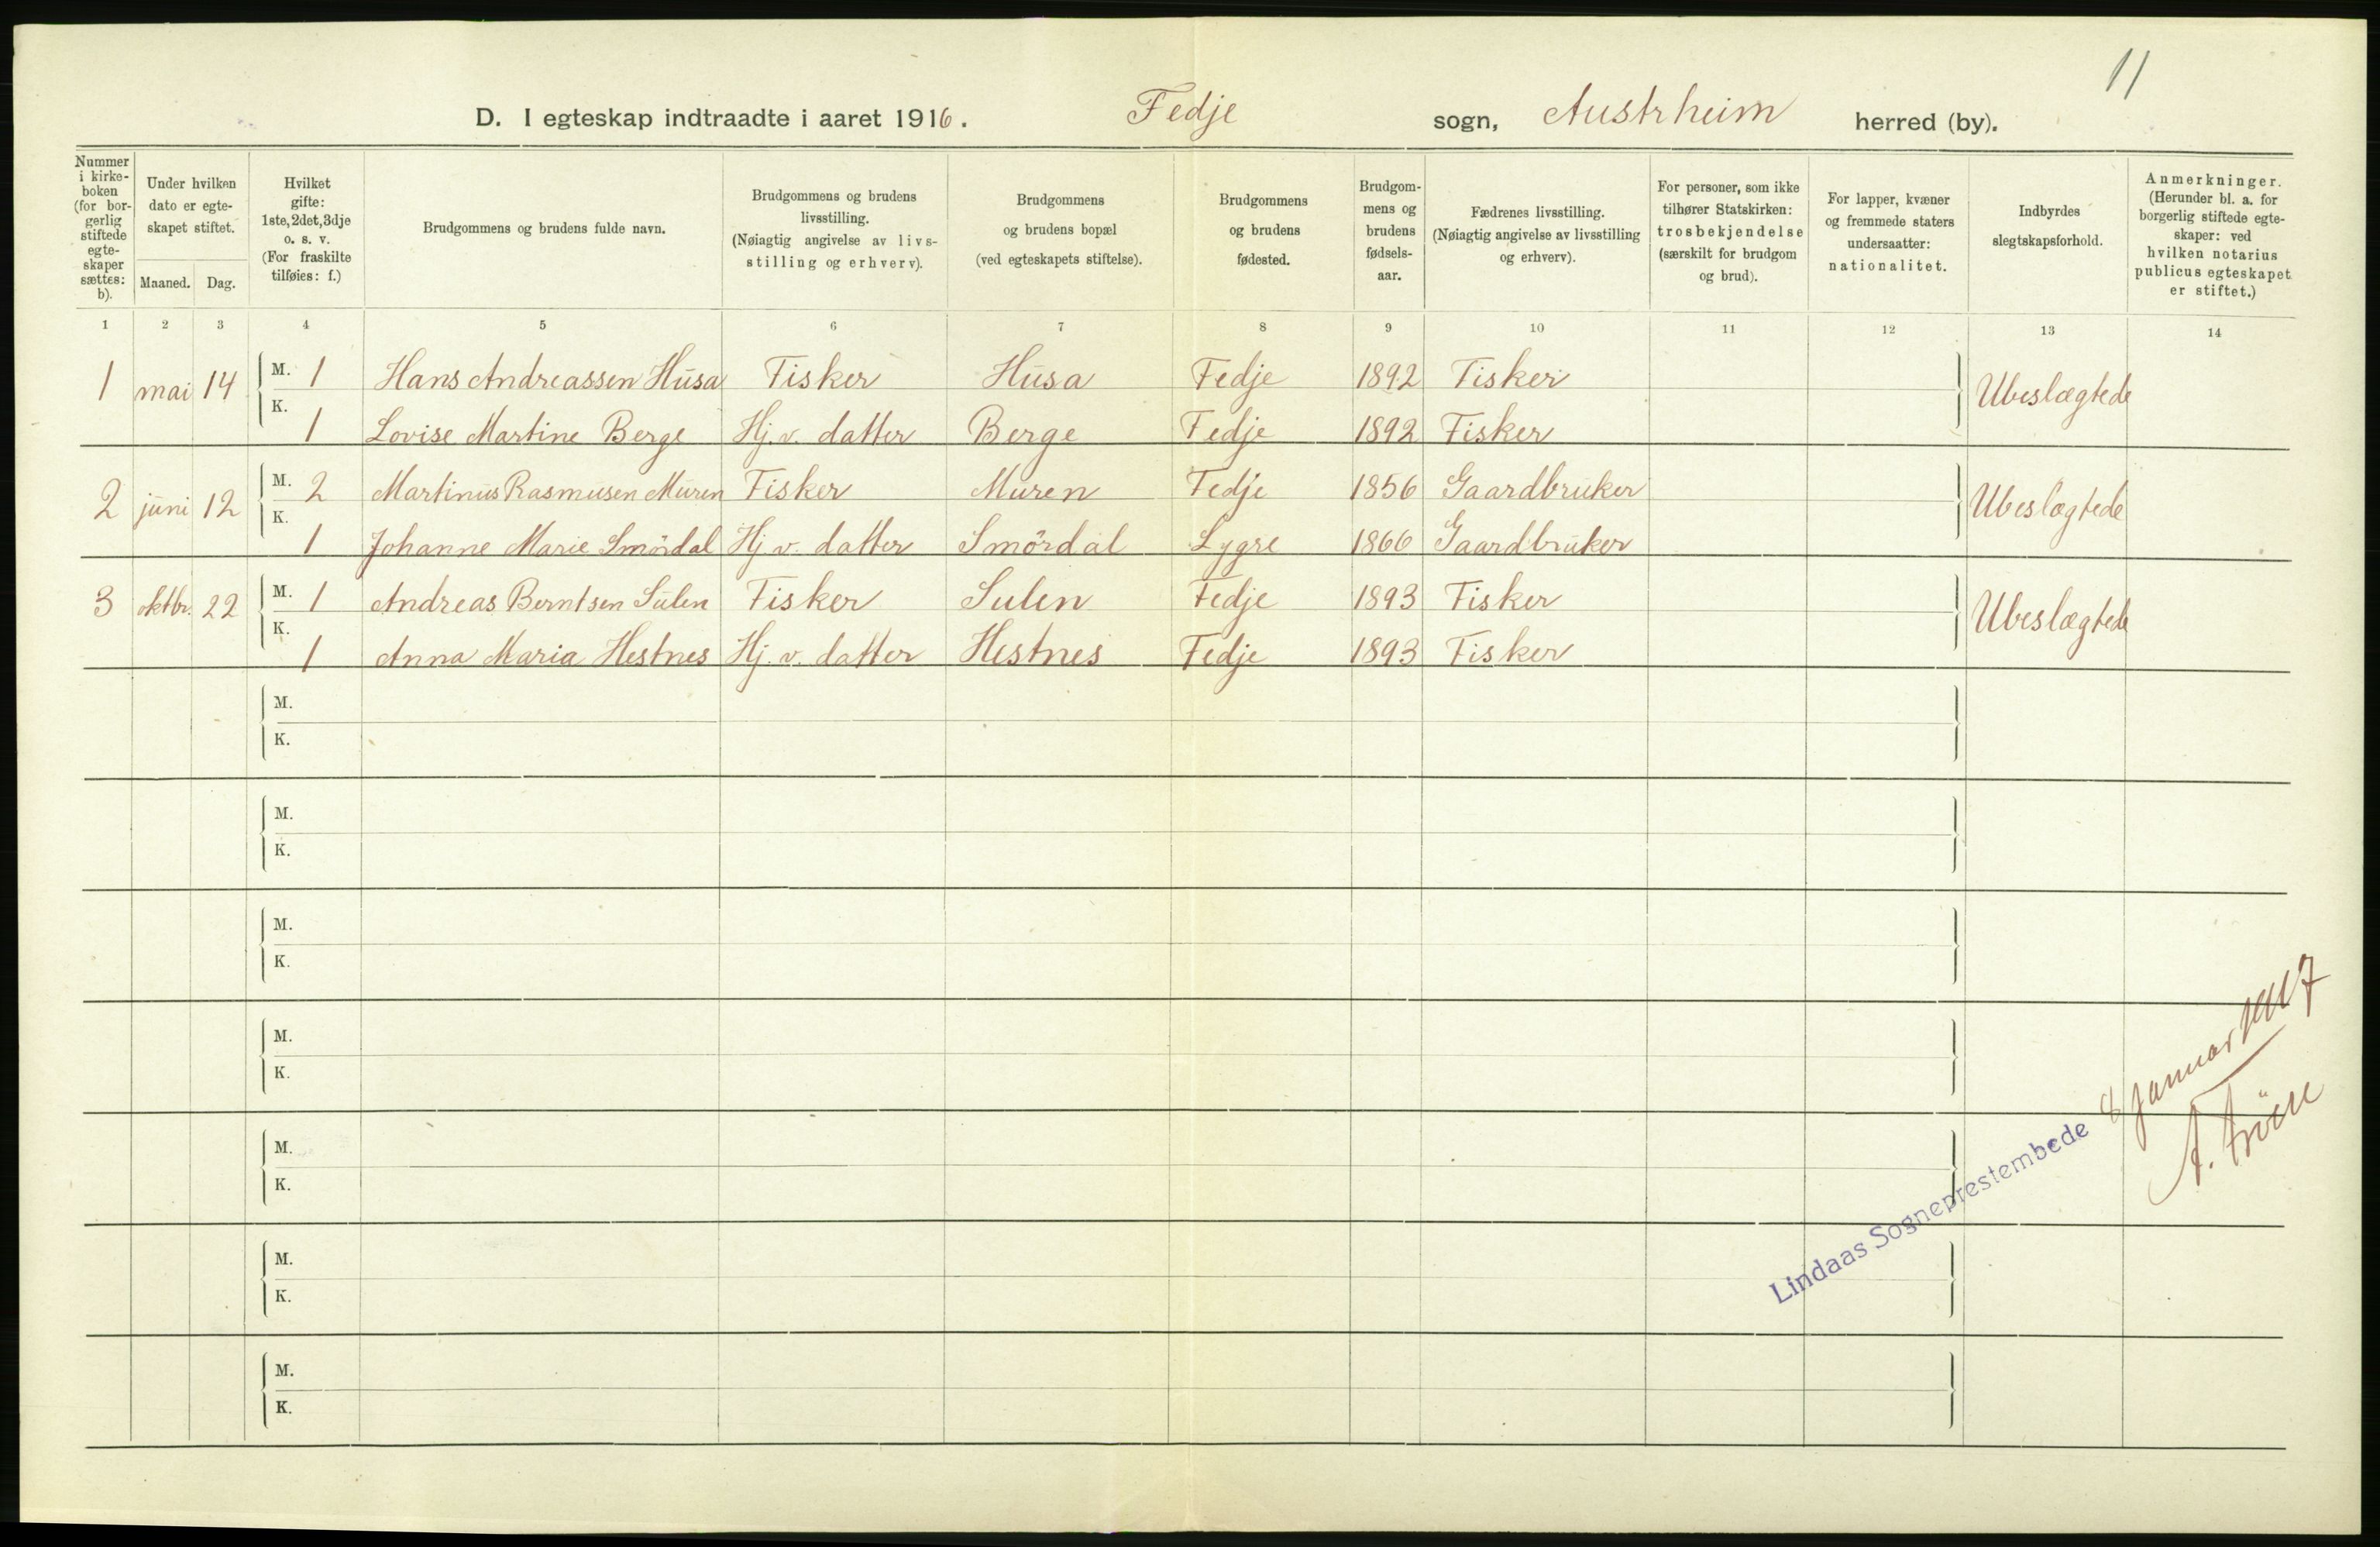 11
D. I egteskap indtraadte i aaret 1916. Fedje sogn, Austrheim herred (by).
Nummer i kirkeboken (for borgerlig stiftede egteskaper sættes: b).
Under hvilken dato er egteskapet stiftet.
Maaned. Dag.
Hvilket gifte: 1ste, 2det, 3dje o. s. v. (For fraskilte tilføies: f.)
Brudgommens og brudens fulde navn.
Brudgommens og brudens livsstilling. (Nøiagtig angivelse av livsstilling og erhverv).
Brudgommens og brudens bopæl (ved egteskapets stiftelse).
Brudgommens og brudens fødested.
Brudgommens og brudens fødselsaar.
Fædrenes livsstilling. (Nøiagtig angivelse av livsstilling og erhverv).
For personer, som ikke tilhører Statskirken: trosbekjendelse (særskilt for brudgom og brud).
For lapper, kvæner og fremmede staters undersaatter: nationalitet.
Indbyrdes slegtskapsforhold.
Anmerkninger. (Herunder bl. a. for borgerlig stiftede egteskaper: ved hvilken notarius publicus egteskapet er stiftet.)
1 2 3 4 5 6 7 8 9 10 11 12 13 14
1 mai 14 M. 1 Hans Andreassen Husa Fisker Husa Fedje 1892 Fisker Ubeslægtede
K. 1 Lovise Martine Berge Hj. v. datter Berge Fedje 1892 Fisker
2 juni 12 M. 2 Martinus Rasmusen Muren Fisker Muren Fedje 1856 Gaardbruker Ubeslægtede
K. 1 Johanne Marie Smördal Hj. v. datter Smördal Lygre 1866 Gaardbruker
3 oktbr. 22 M. 1 Andreas Berntsen Sulen Fisker Sulen Fedje 1893 Fisker Ubeslægtede
K. 1 Anna Maria Hestnes Hj. v. datter Hestnes Fedje 1893 Fisker
M.
K.
M.
K.
M.
K.
M.
K.
M.
K.
M.
K.
M.
K.
Lindaas Sogneprestembede 8 januar 1917
A.